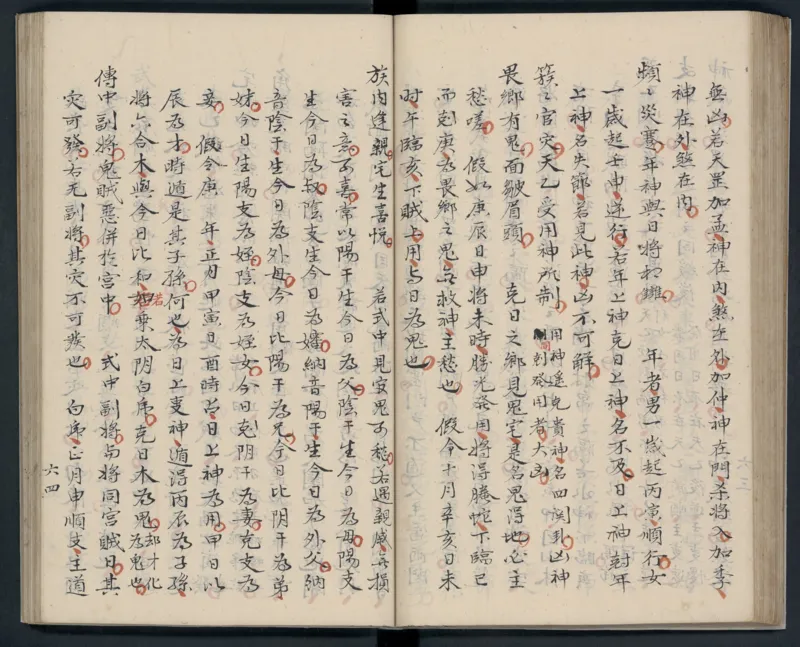 無凶若天罡加孟神在內煞在外加仲神在門杀將入加季
神在外煞在內
煩之災蹇年神與日將相雜　年者男一歲起丙寅順行女
一歲起壬申逆行若年上神克日上神名不及日上神尅年
上神名失節若見此神凶不可解
簇之官灾天乙受用神所制　用神遥克貴神名四関到凶神
同尅発用者大凶
畏鄉有鬼面皺眉頭　克日之鄉見鬼宅是名鬼得地必主
愁嗟　假如庚辰日申將未時勝光発用將得騰蛇下臨巳
而尅庚為畏鄉之鬼無救神主愁也　假令十月辛亥日未
时午臨亥下賊上用与日為鬼也
族內逢親宅生喜悦　若式中見寂鬼可愁若遇親戚無損
害之意可喜常以陽干生今日為父陰干生今日為母陽支
生今日為叔陰支生今日為嬸納音陽干生今日為外父納
音陰干生今日為外母今日比陽干為兄今日比阴干為弟
妹今日生陽支為姪陰支為姪女今日克阴干為妻克支為
妾　假令庚　年正月甲寅日酉時占日上神為用甲日以
辰為才時遁是其子孫何也為日上支神遁得丙辰為子孫
將六合木與今日比和如若乗太阴白乕克日木為鬼却才化
為鬼也
傳中副將鬼賊惡併於宫中　式中副將与將同宫賊日其
灾可發右无副將其灾不可發也　白乕正月申順支主道
六四